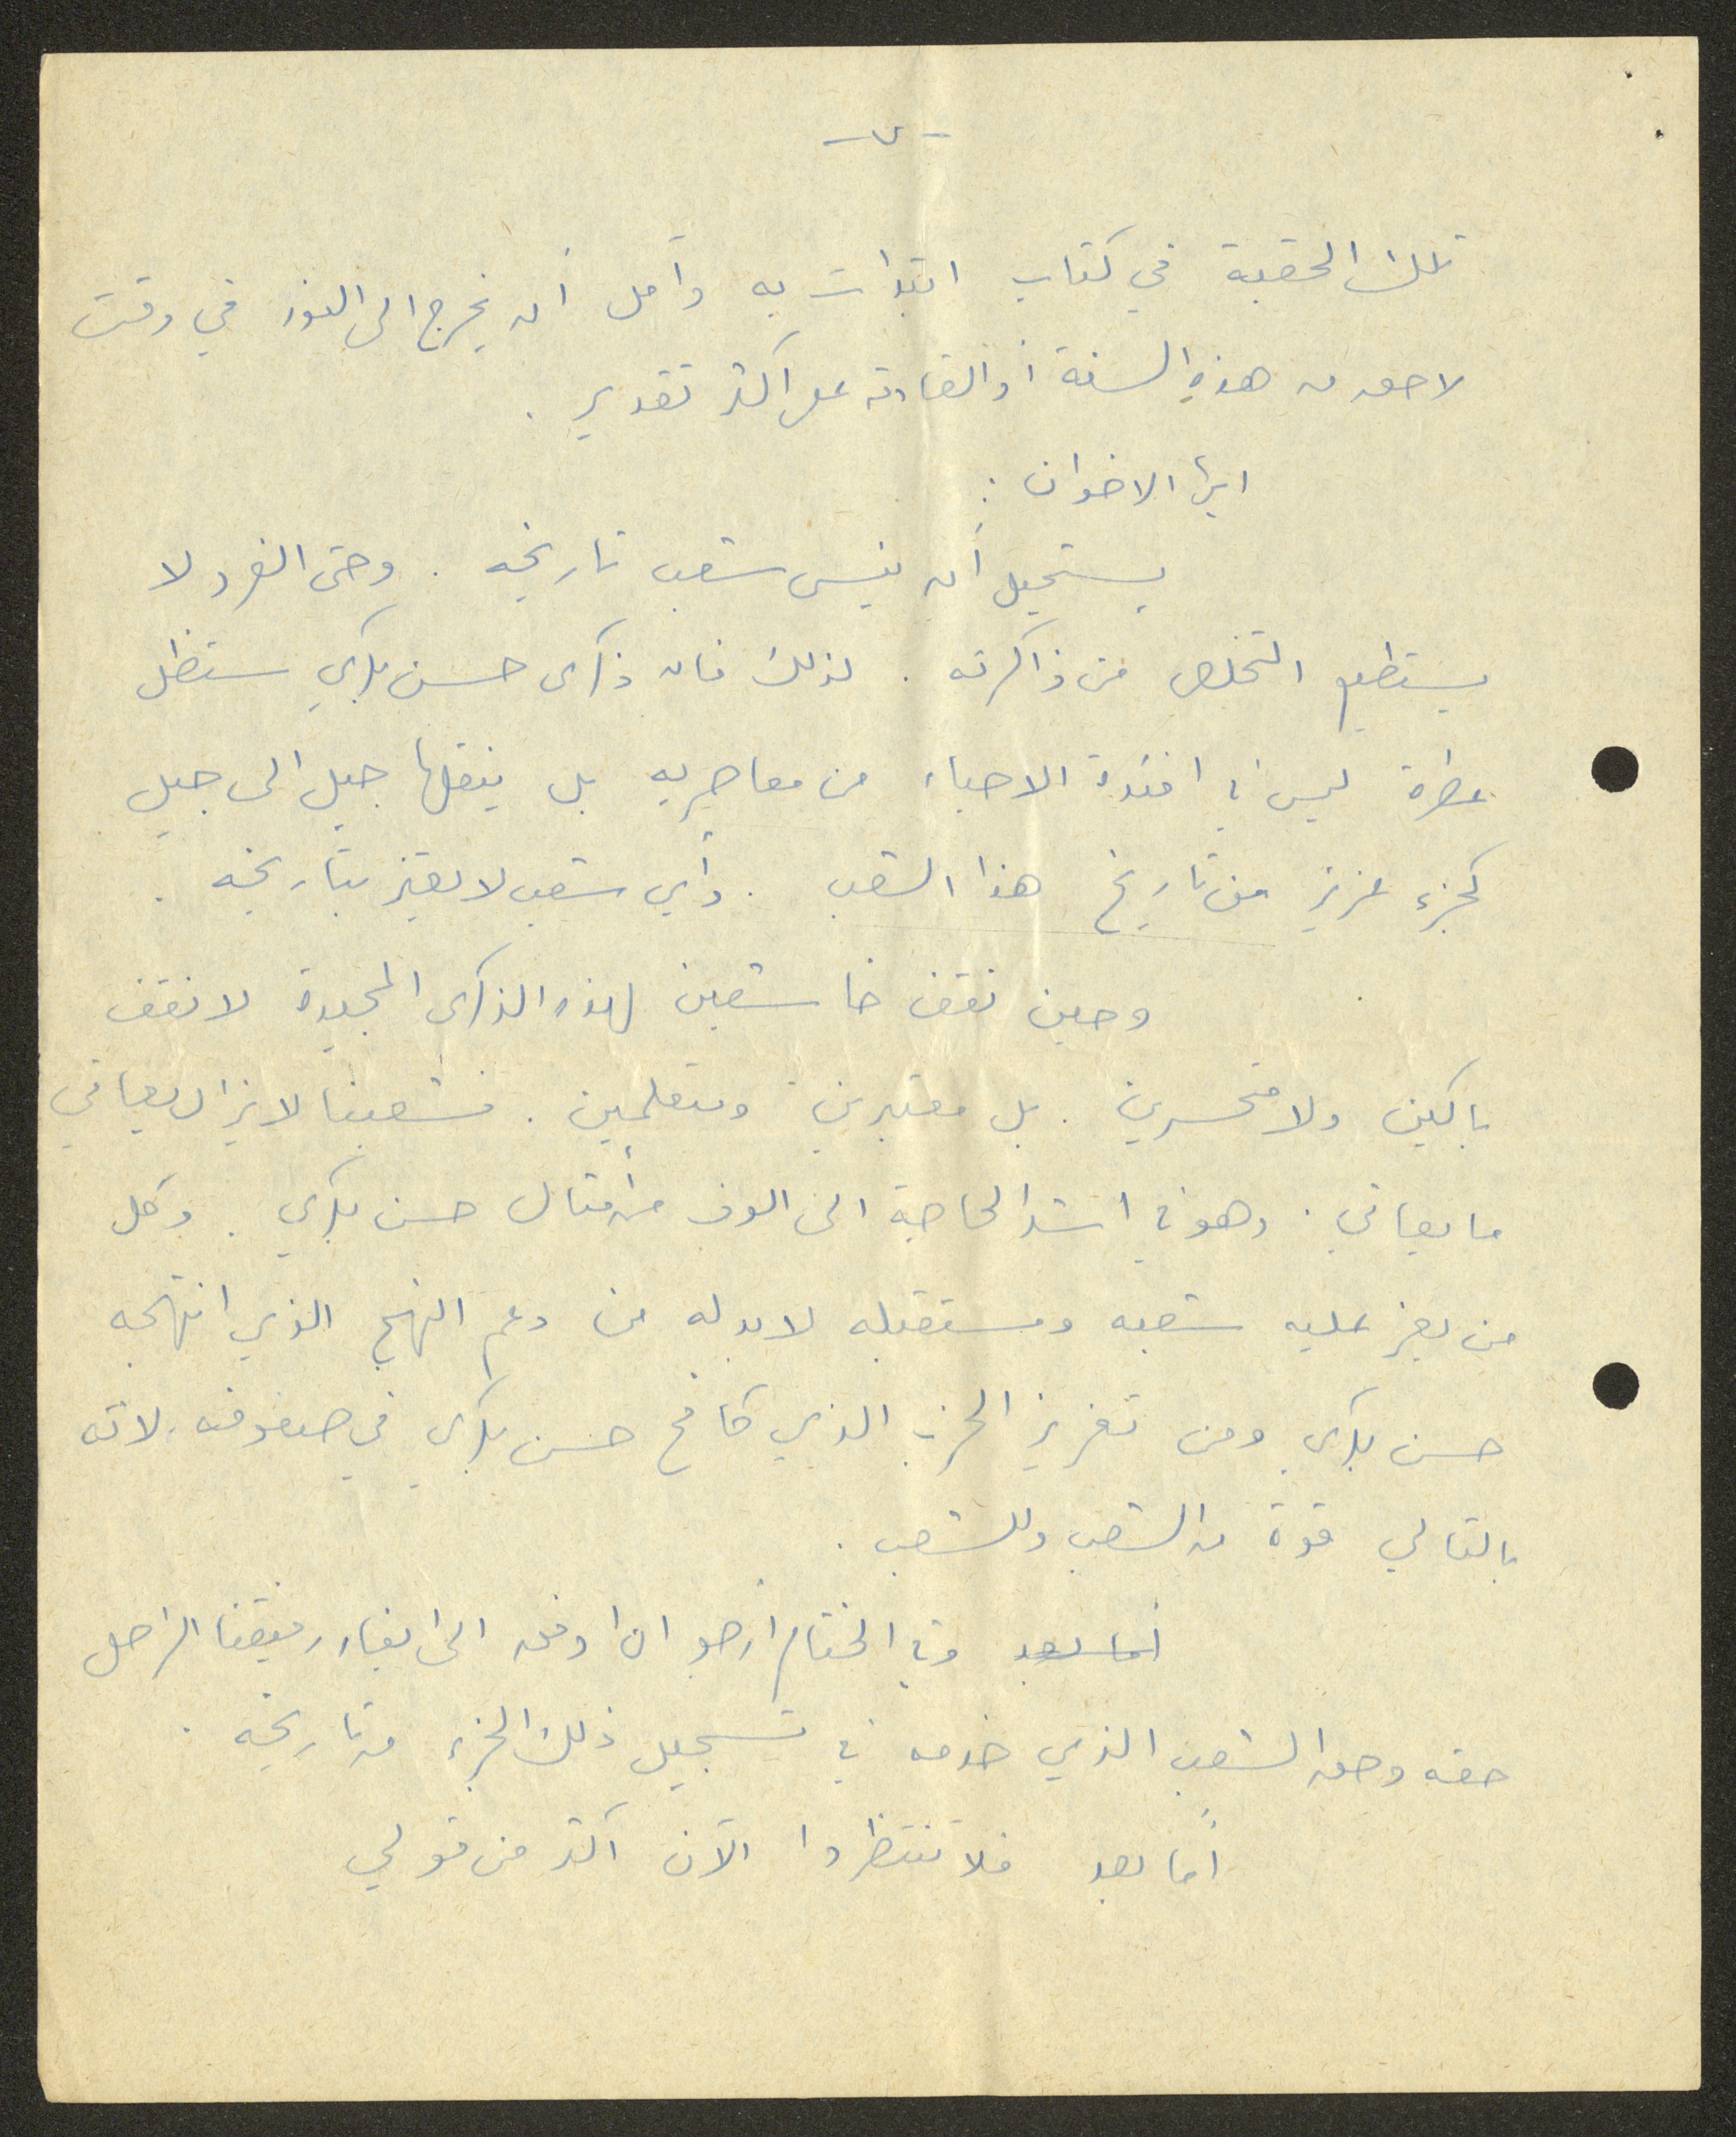 تلك الحقبة في كتاب ابتدات به وآمل أن يخرج الى النور في وقت
لاحق من هذه السنة أو القادمة على اكثر تقدير .
ايها الاخوان :
يستحيل أن ينسى شعب تاريخه . وحتى الفرد لا
يستطيع التخلص من ذاكرته . لذلك فان ذكرى حسن بكري ستظل
عطرة ليس في افئدة الاحباء من معاصريه بل ينقلها جيل الى جيل
كجزء عزيز من تاريخ هذا الشعب . وأي شعب لا يعتز بتاريخه .
وحين نقف خاشعين لهذه الذكرى المجيدة لا نقف
باكين ولا متحسرين . بل معتبرين ومتعلمين . فشعبنا لا يزال يعاني
ما يعاني . وهو في اشد الحاجة الى الوف من أمثال حسن بكري . وكل
من يعز عليه شعبه ومستقبله لا بد له من دعم النهج الذي انتهجه
حسن بكري ومن تعزيز الحزب الذي كافح حسن بكري في صفوفه . لانه
بالتالي قوة من الشعب وللشعب .
أما بعد وفي الختام أرجو ان اوفق الى ايفاء رفيقنا الراحل
حقه وحق الشعب الذي خدمه في تسجيل ذلك الجزء من تاريخه .
أما بعد فلا تنتظروا الآن اكثر من قولي